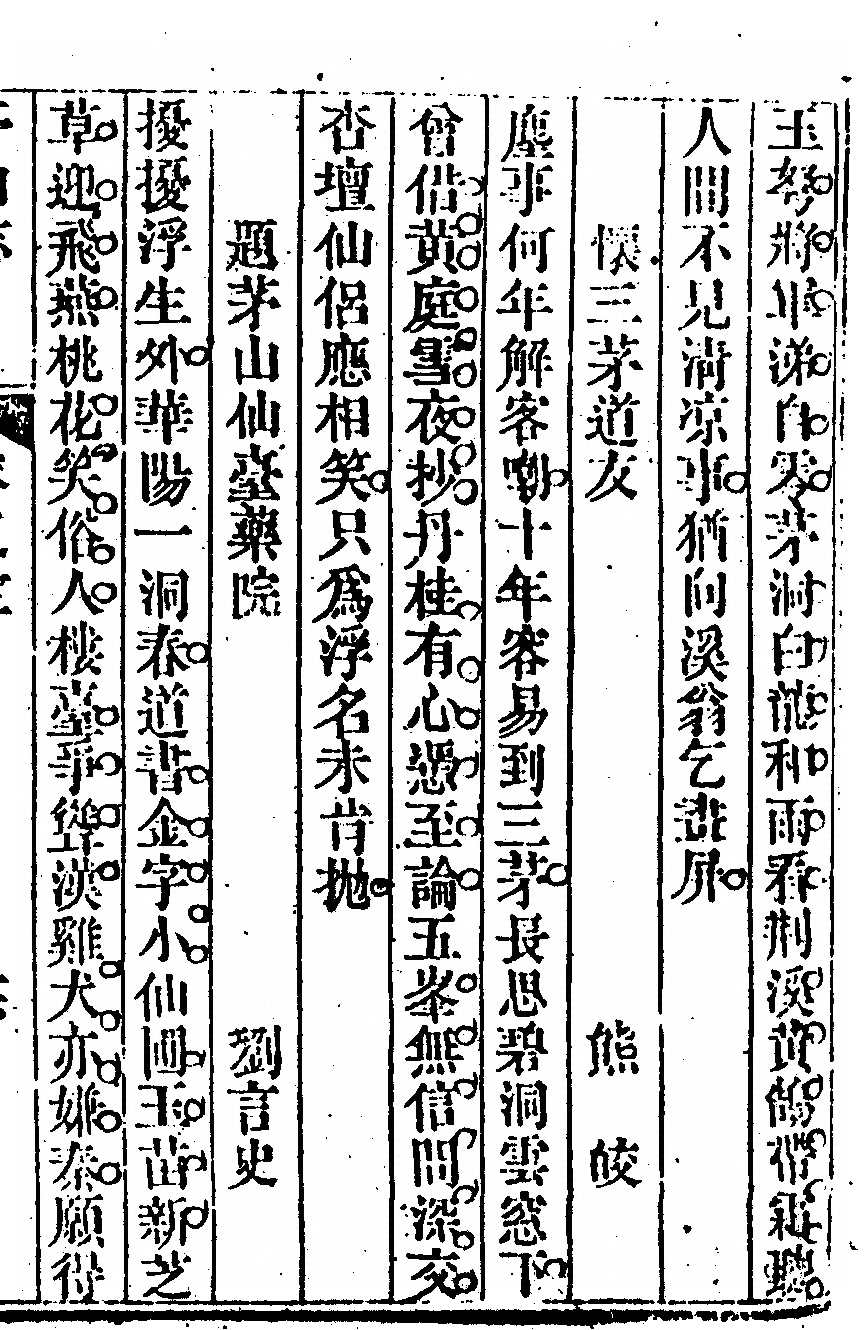 玉弩將軍涕自零茅洞白龍和雨看荆溪黃鶴帶雲聽
人間不見淸凉事猶向溪翁乞畫屏
懷三茅道友　熊皎
塵事何年解客嘲十年容易到三茅長思碧洞雲窓下
曾借黃庭雪夜抄丹桂有心憑至論五峯無信問深交
杏壇仙侶應相笑只爲浮名未肯抛
題茅山仙臺藥院　劉言史
擾擾浮生外華陽一洞春道書金字小仙圃玉苗新芝
草迎飛燕桃花笑俗人樓臺爭聳漢雞犬亦嫌秦願得